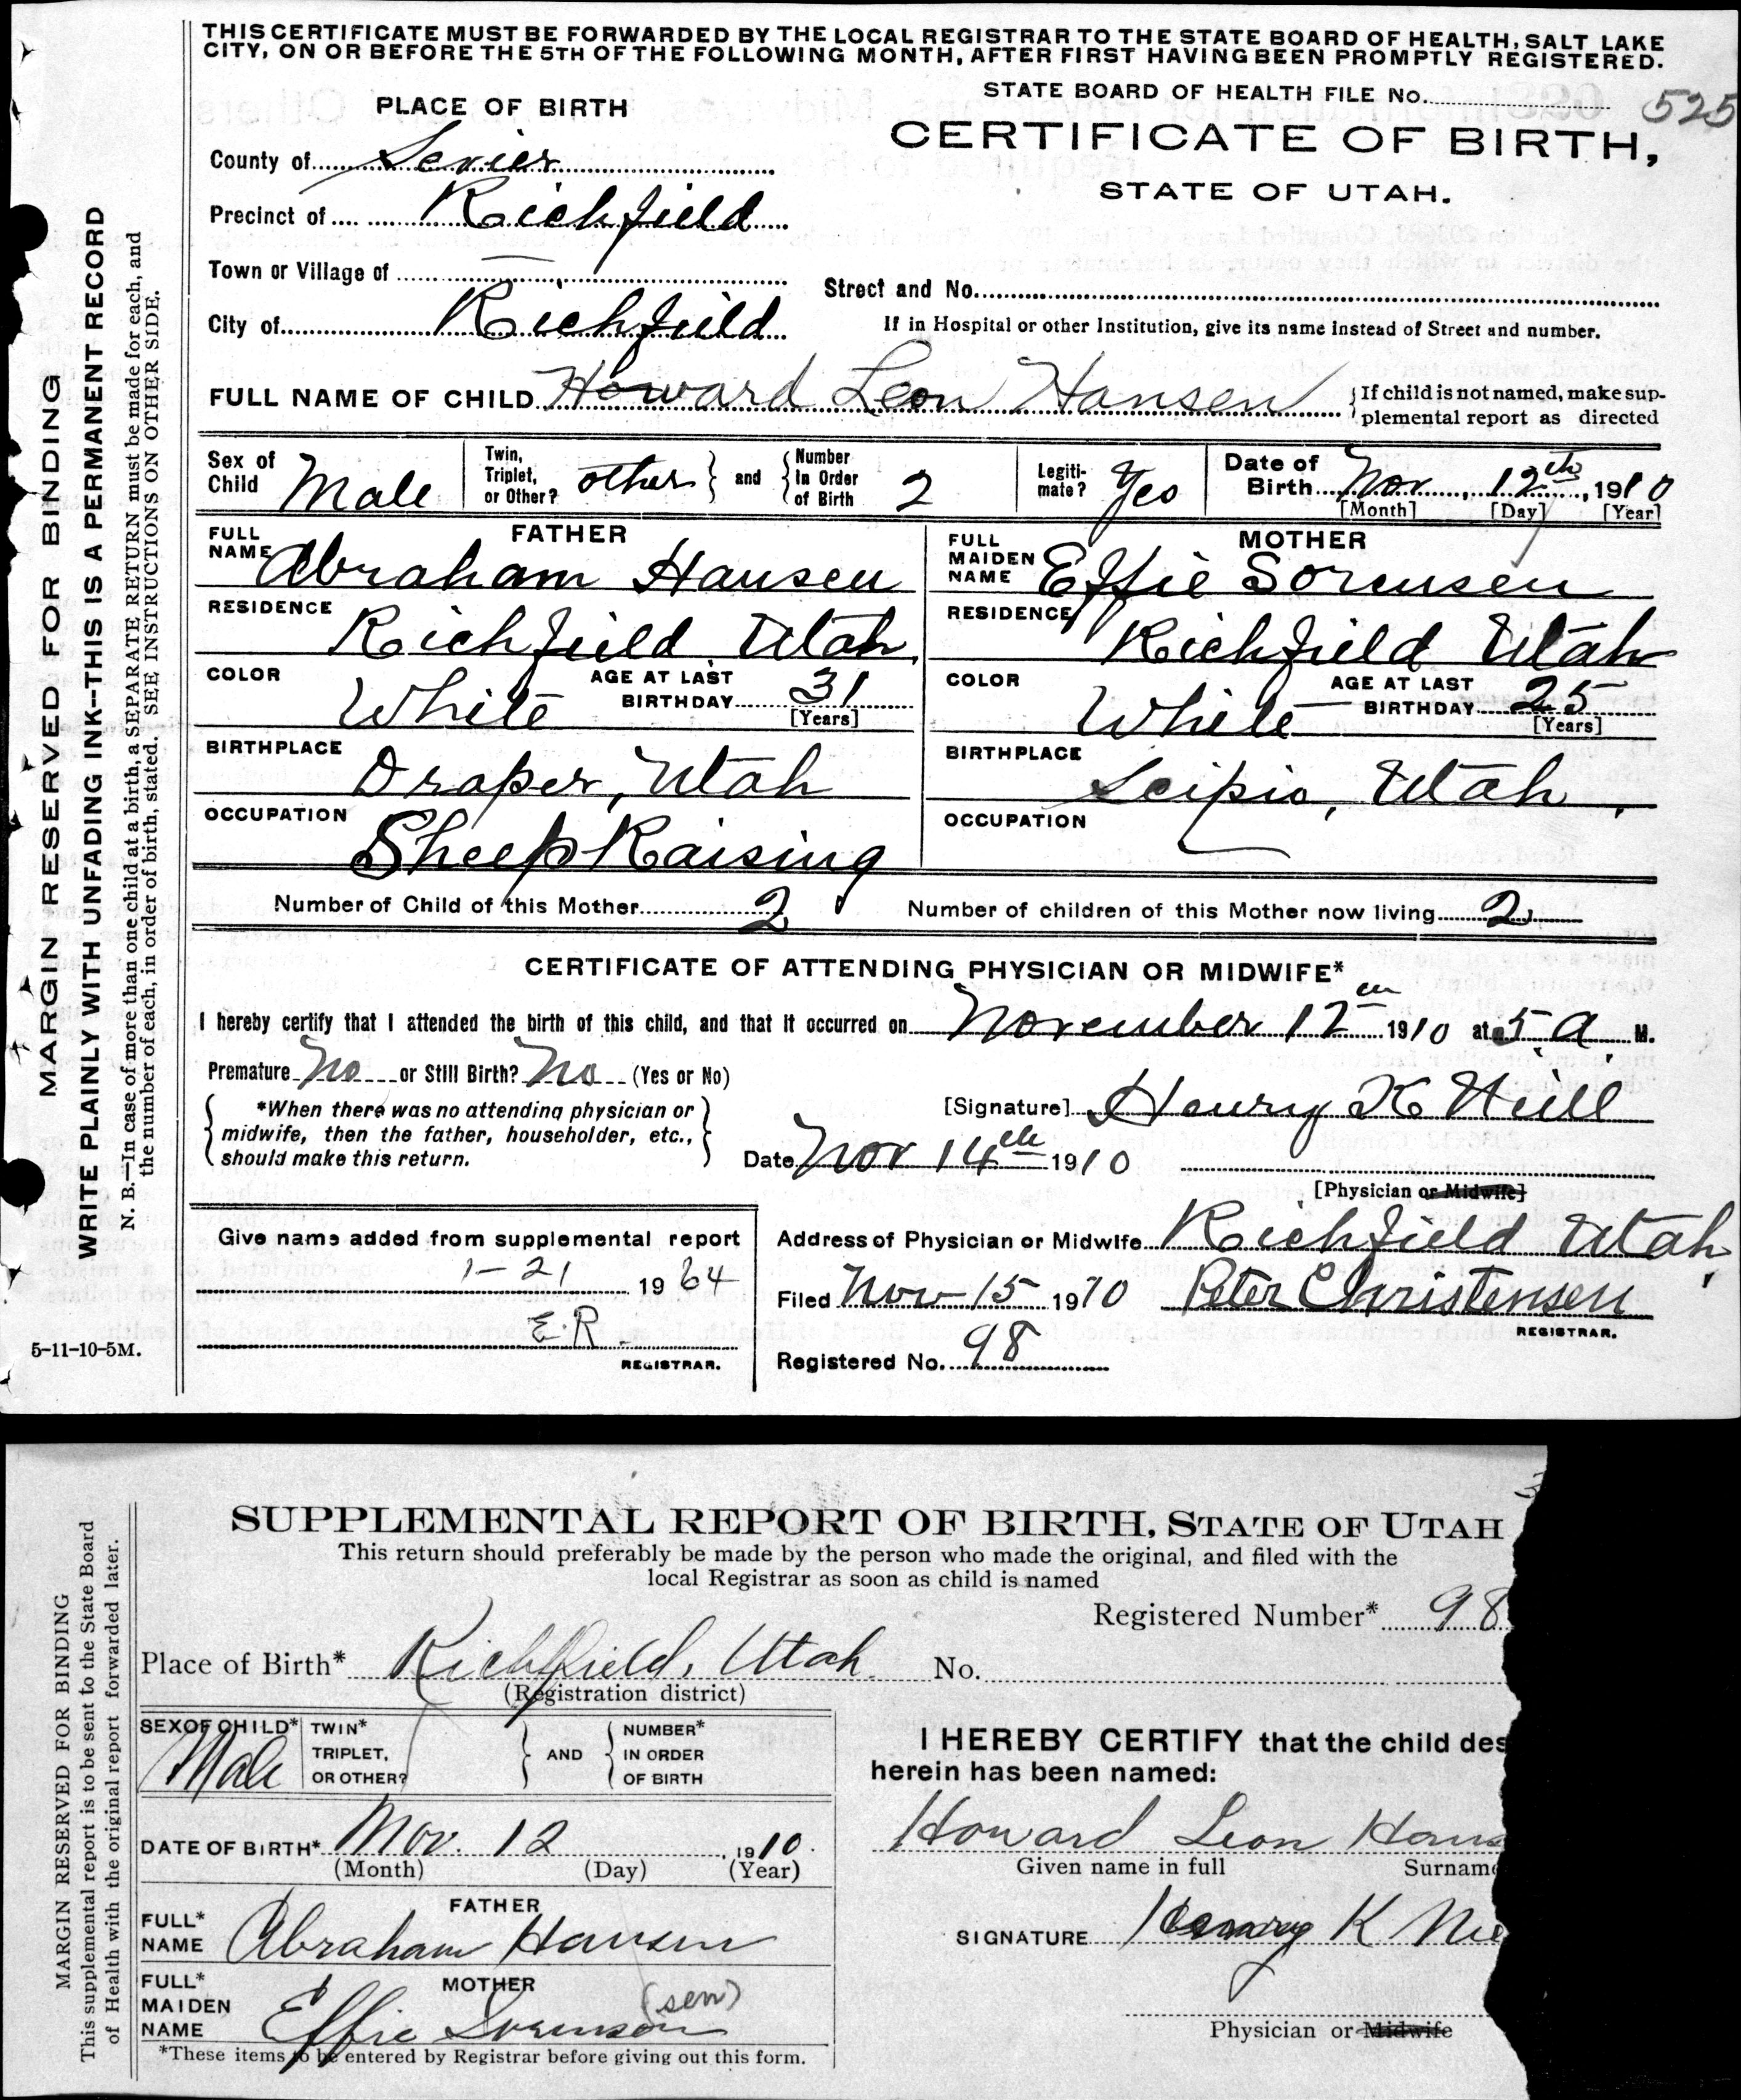 THIS CERTIFICATE MUST BE FORWARDED BY THE LOCAL REGISTRAR TO THE STATE BOARD OF HEALTH, SALT LAKE
CITY, ON OR BEFORE THE 5TH OF THE FOLLOWING MONTH, AFTER FIRST HAVING BEEN PROMPTLY REGISTERED.
STATE BOARD OF HEALTH FILE No. 525
PLACE OF BIRTH
CERTIFICATE OF BIRTH,
STATE OF UTAH.
County of Sevier
Precinct of Richfield
Town or Village of
Street and No.
City of Richfield
If in Hospital or other Institution, give its name instead of Street and number.
FULL NAME OF CHILD Howard Leon Hansen
If child is not named, make sup-
plemental report as directed
Sex of Child Male
Twin, Triplet, or Other? other and Number In Order of Birth 2
Legiti-mate? Yes
Date of Birth Nov, 12th, 1910
[Month] [Day] [Year]
FATHER
FULL NAME Abraham Hansen
RESIDENCE Richfield, Utah.
COLOR White AGE AT LAST BIRTHDAY 31
[Years]
BIRTHPLACE Draper, Utah
OCCUPATION Sheep Raising
MOTHER
FULL MAIDEN NAME Effie Sorensen
RESIDENCE Richfield Utah
COLOR White AGE AT LAST BIRTHDAY 25
[Years]
BIRTHPLACE Scipio, Utah,
OCCUPATION
Number of Child of this Mother 2 Number of children of this Mother now living 2
CERTIFICATE OF ATTENDING PHYSICIAN OR MIDWIFE*
I hereby certify that I attended the birth of this child, and that it occurred on November 12th 1910 at 5 A. M.
Premature No or Still Birth? No (Yes or No)
*When there was no attending physician or
midwife, then the father, householder, etc.,
should make this return.
[Signature] Henry K
Date Nov 14th 1910
[Physician or Midwife]
Give name added from supplemental report
1-21 1964
E.R.
REGISTRAR.
Address of Physician or Midwife Richfield Utah
Filed Nov-15 1910 Peter Christensen
REGISTRAR.
Registered No. 98
5-11-10-5M.
MARGIN RESERVED FOR BINDING
WRITE PLAINLY WITH UNFADING INK--THIS IS A PERMANENT RECORD
N. B.—In case of more than one child at a birth, a SEPARATE RETURN must be made for each, and
the number of each, in order of birth, stated. SEE INSTRUCTIONS ON OTHER SIDE.
SUPPLEMENTAL REPORT OF BIRTH, STATE OF UTAH
This return should preferably be made by the person who made the original, and filed with the
local Registrar as soon as child is named
Registered Number* 98
Place of Birth* Richfield, Utah. No.
(Registration district)
SEX OF CHILD* Male
TWIN* TRIPLET, OR OTHER? AND NUMBER* IN ORDER OF BIRTH
DATE OF BIRTH* Nov. 12, 1910.
(Month) (Day) (Year)
FATHER
FULL* NAME Abraham Hansen
MOTHER
FULL* MAIDEN NAME Effie Sorenson (sen)
*These items to be entered by Registrar before giving out this form.
I HEREBY CERTIFY that the child des
herein has been named:
Howard Leon Hans
Given name in full Surname
SIGNATURE Henry K
Physician or Midwife
MARGIN RESERVED FOR BINDING
This supplemental report is to be sent to the State Board
of Health with the original report forwarded later.